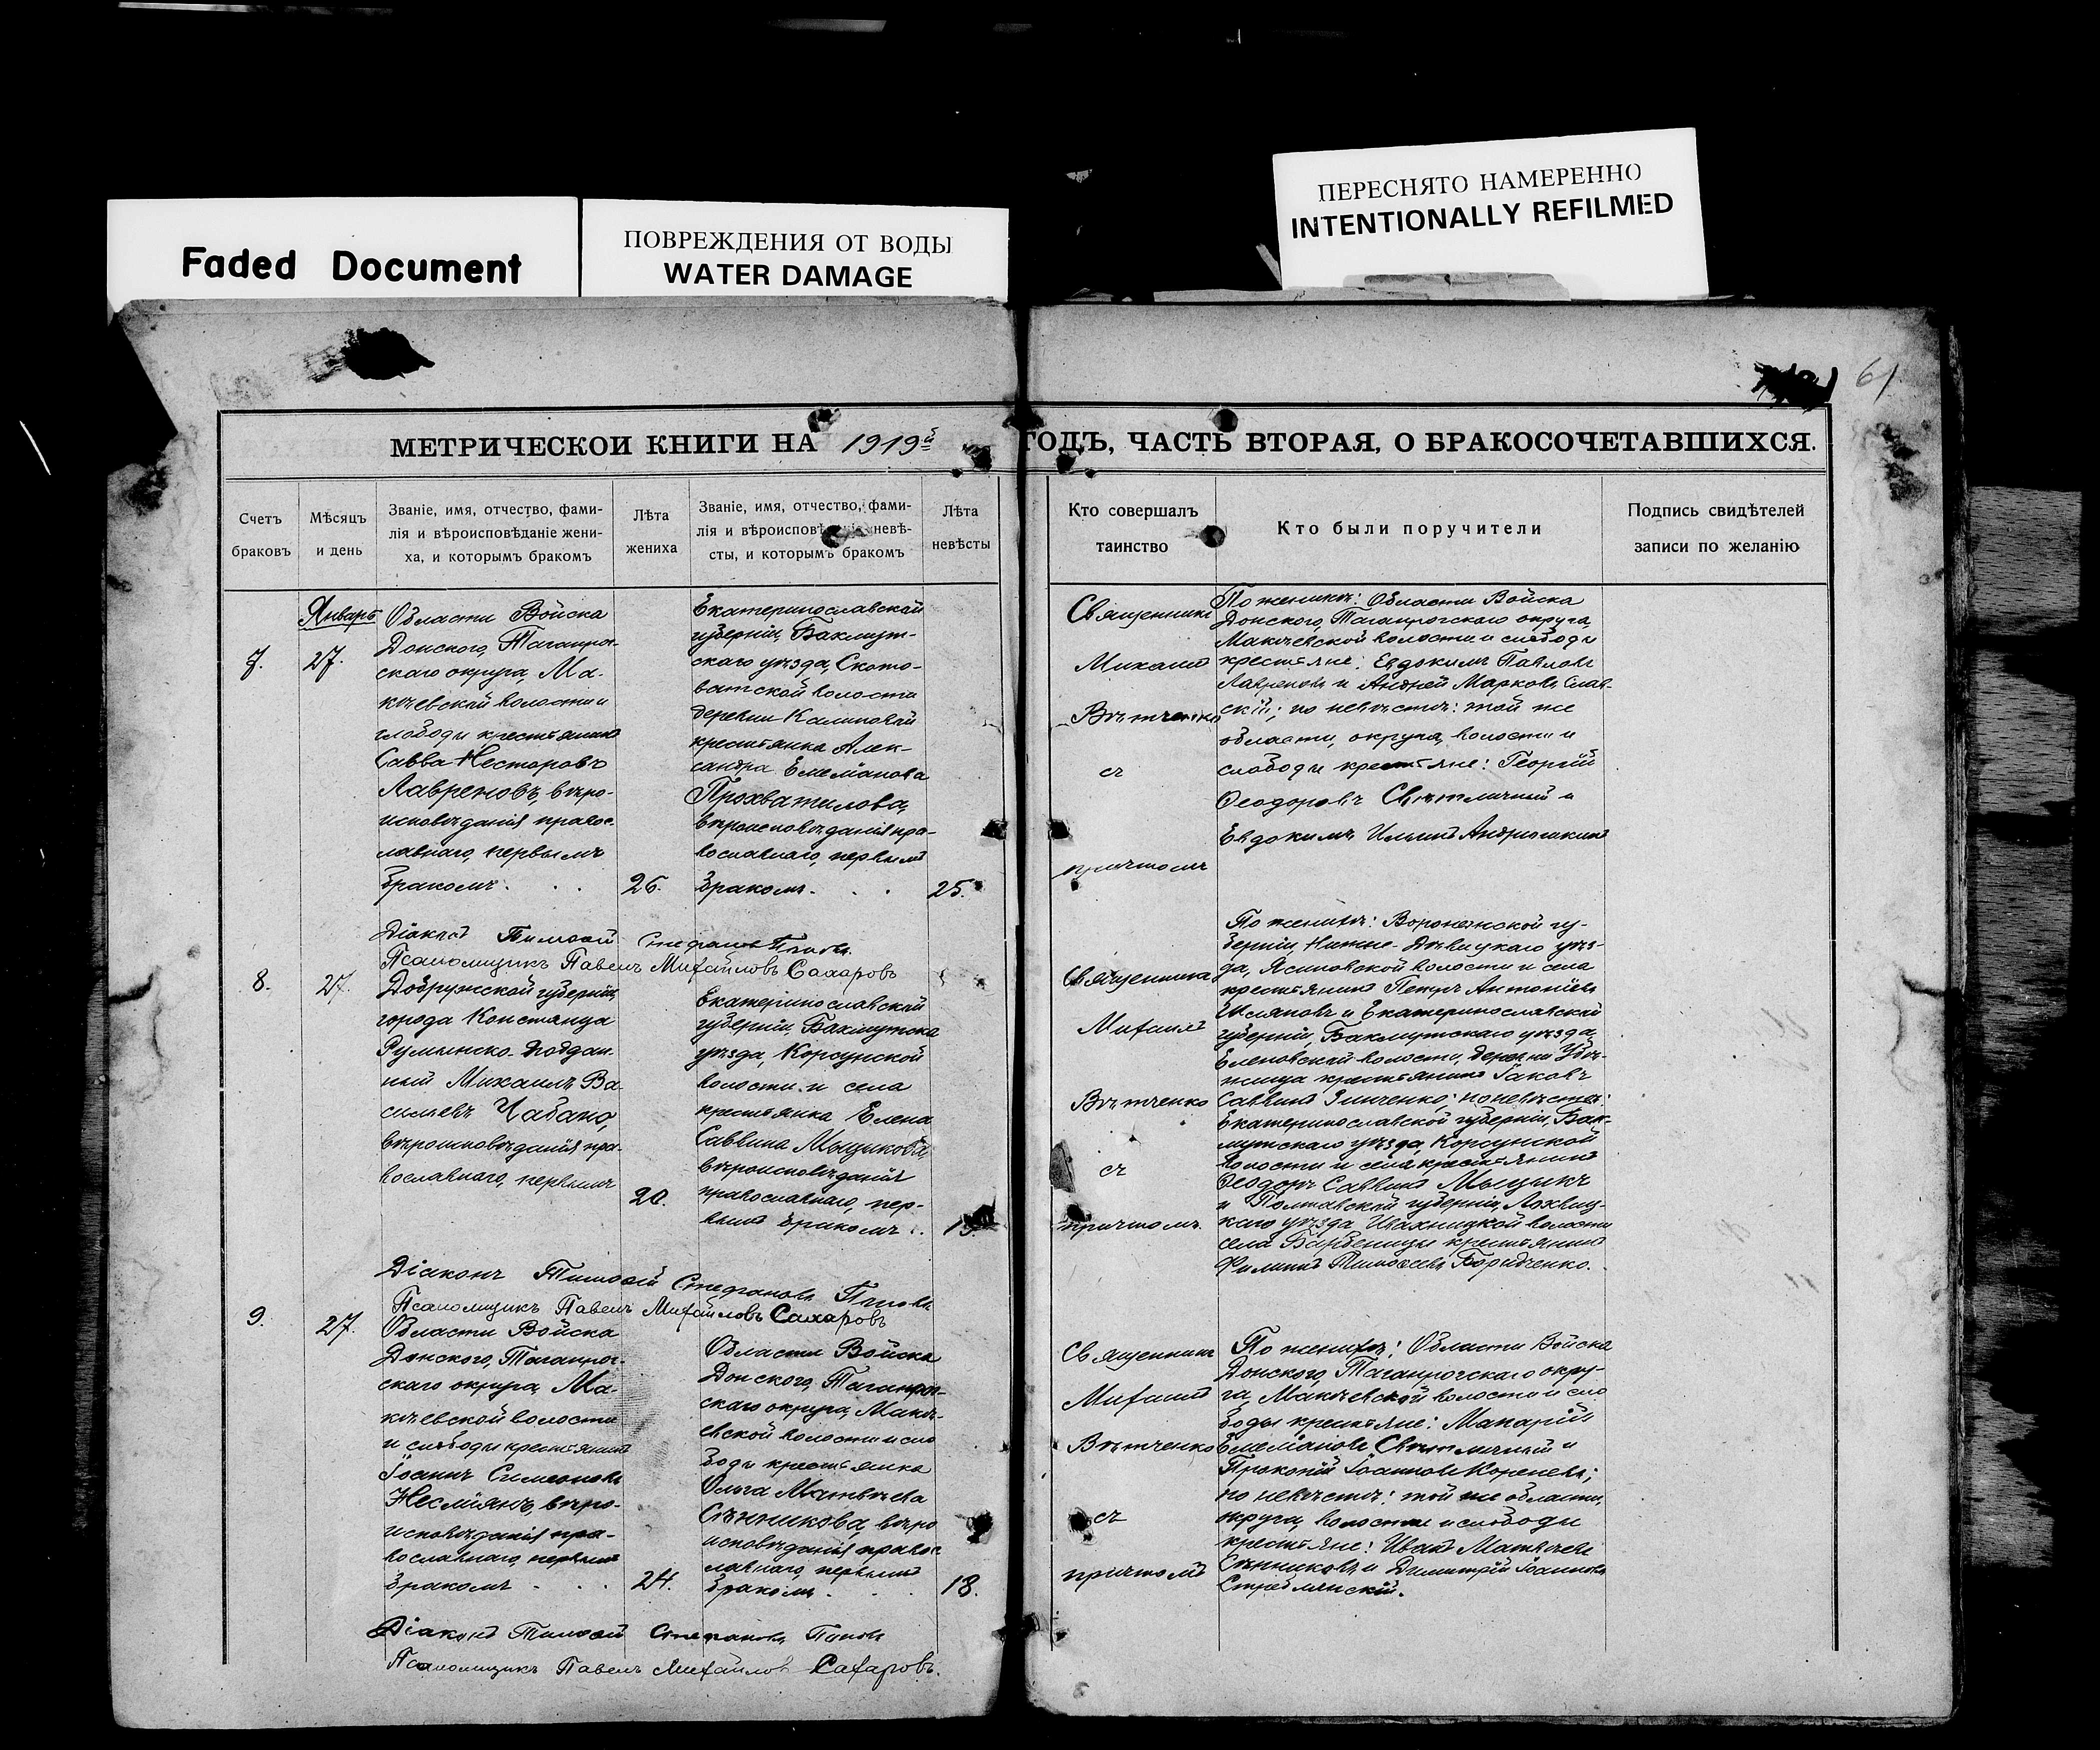 ПЕРЕСНЯТО НАМЕРЕННО
INTENTIONALLY REFILMED
Faded Document
ПОВРЕЖДЕНИЯ ОТ ВОДЫ
WATER DAMAGE
61
МЕТРИЧЕСКОЙ КНИГИ НА 1919й ГОДЪ, ЧАСТЬ ВТОРАЯ, О БРАКОСОЧЕТАВШИХСЯ.
Счетъ
браковъ
Мѣсяцъ
и день
Званіе, имя, отчество, фами-
лія и вѣроисповѣданіе жени-
ха, и которымъ бракомъ
Лѣта
жениха
Званіе, имя, отчество, фами-
лія и вѣроисповѣданіе невѣ-
сты, и которымъ бракомъ
Лѣта
невѣсты
Кто совершалъ
таинство
Кто были поручители
Подпись свидѣтелей
записи по желанію
7.
Январь
27.
Области Войска
Донского, Таганрог-
скаго округа, Ма-
кѣевской волости и
слободы крестьянинъ
Савва Несторовъ
Лавреновъ, вѣро-
исповѣданія правос-
лавнаго, первымъ
бракомъ. . .
26.
Екатеринославской
губерніи, Бахмут-
скаго уѣзда, Ското-
ватской волости
деревни Калиновой
крестьянка Алек-
сандра Емеліанова
Прохватилова,
вѣроисповѣданія пра-
вославнаго, первымъ
бракомъ. . .
25.
Священникъ
Михаилъ
Вѣтченко
съ
причтомъ
По женихѣ: Области Войска
Донского, Таганрогскаго округа,
Макѣевской волости и слободы
крестьяне: Евдокимъ Павловъ
Лавреновъ и Андрей Марковъ Слав-
скій; по невѣстѣ: той же
области, округа, волости и
слободы крестьяне: Георгій
Ѳеодоровъ Свѣтличный и
Евдокимъ Ильинъ Андрюшкинъ
Діаконъ Тимоѳей Стефановъ Поповъ
Псаломщикъ Павелъ Михайловъ Сахаровъ
8.
27.
Добружской губерніи,
города Констанца
Румынско-Поддан-
ный Михаилъ Ва-
сильевъ Чабано,
вѣроисповѣданія пра-
вославнаго, первымъ
20.
Екатеринославской
губерніи, Бахмутска
уѣзда, Корсунской
волости и села
крестьянка Елена
Саввина Мыцикова
вѣроисповѣданія
православнаго, пер-
вымъ бракомъ . .
Священникъ
Михаилъ
Вѣтченко
съ
причтомъ.
По женихѣ: Воронежской гу-
берніи, Нижне-Дѣвицкаго уѣз-
да, Ясиновской волости и села
крестьянинъ Петръ Антоніевъ
и Екатеринославской
губерніи, Бахмутскаго уѣзда,
Еленовской волости, деревни
крестьянинъ Іаковъ
Саввинъ Зинченко; по невѣстѣ:
Екатеринославской губерніи, Бах-
мутскаго уѣзда, Корсунской
волости и села крестьянинъ
Ѳеодоръ Саввинъ Мыцыкъ
и Полтавской губерніи, Лохвиц-
каго уѣзда Ивахницкой волости
села крестьянинъ
Филиппъ Тимоѳеевъ
Діаконъ Тимоѳей Стефановъ Поповъ
Псаломщикъ Павелъ Михайловъ Сахаровъ
9.
27.
Области Войска
Донского, Таганрог-
скаго округа, Ма-
кѣевской волости
и слободы крестьянинъ
Іоаннъ Симеоновъ
Несміянъ, вѣро-
исповѣданія пра-
вославнаго, первымъ
бракомъ . . .
24.
Области Войска
Донского, Таганрог-
скаго округа, Макѣ-
евской волости и сло
боды крестьянка
Ольга Матвѣева
Сѣнникова, вѣро
исповѣданія правос
лавнаго, первымъ
бракомъ. . .
18.
Священникъ
Михаилъ
Вѣтченко
съ
причтомъ
По женихѣ: Области Войска
Донского, Таганрогскаго окру-
га, Макѣевской волости и сло
боды крестьяне: Макарій
Емеліановъ Свѣтличный и
Прокопій Іоанновъ Кореневъ;
по невѣстѣ: той же области,
округа, волости и слободы
крестьяне: Иванъ Матвѣевъ
Сѣнниковъ и Димитрій Іоанновъ
Стремлянскій.
Діаконъ Тимоѳей Стефановъ Поповъ
Псаломщикъ Павелъ Михайловъ Сахаровъ.